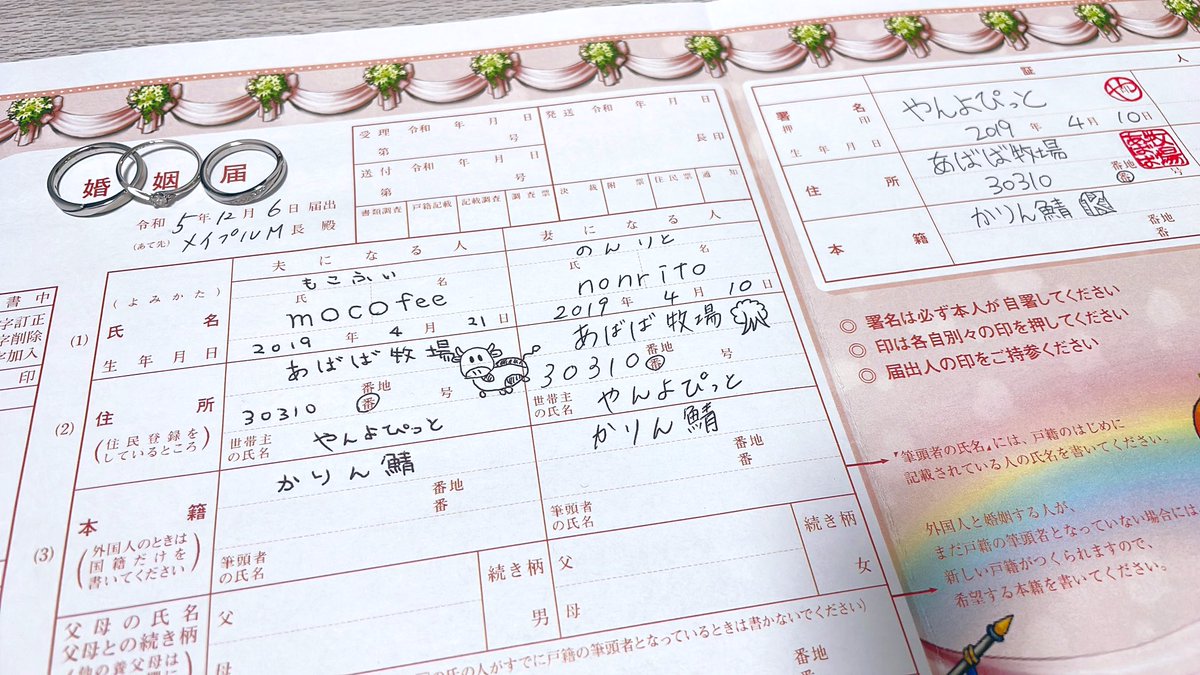 婚姻届
令和5年12月6日届出
(あて先) メイプルM 長 殿
受理 令和 年 月 日
第 号
送付 令和 年 月 日
第 号
発送 令和 年 月 日
長印
書類調査 戸籍記載 記載調査 調査票 決裁 附票 住民票 通知
夫になる人
妻になる人
(1)
(よみかた)
もこふぃ
のんりと
氏 名
氏 名
氏名
mocofee
nonrito
生年月日
2019年4月21日
2019年4月10日
(2)
住所
(住民登録をしているところ)
あばば牧場
30310 番地 番 号
あばば牧場
30310 番地 番 号
世帯主の氏名 やんよぴっと
世帯主の氏名 やんよぴっと
(3)
本籍
(外国人のときは国籍だけを書いてください)
かりん鯖
番地
番
かりん鯖
番地
番
筆頭者の氏名
筆頭者の氏名
父母の氏名
父母との続き柄
父
母
続き柄
男
父
母
続き柄
女
書中
字訂正
字削除
字加入
印
の氏の人がすでに戸籍の筆頭者となっているときは書かないでください)
番地
番
証 人
署名
押印
やんよぴっと
や
生年月日
2019年4月10日
住所
あばば牧場
30310 番地 番
牧場
本籍
かりん鯖
番地
番
◎ 署名は必ず本人が自署してください
◎ 印は各自別々の印を押してください
◎ 届出人の印をご持参ください
「筆頭者の氏名」には、戸籍のはじめに
記載されている人の氏名を書いてください。
外国人と婚姻する人が、
まだ戸籍の筆頭者となっていない場合には
新しい戸籍がつくられますので、
希望する本籍を書いてください。